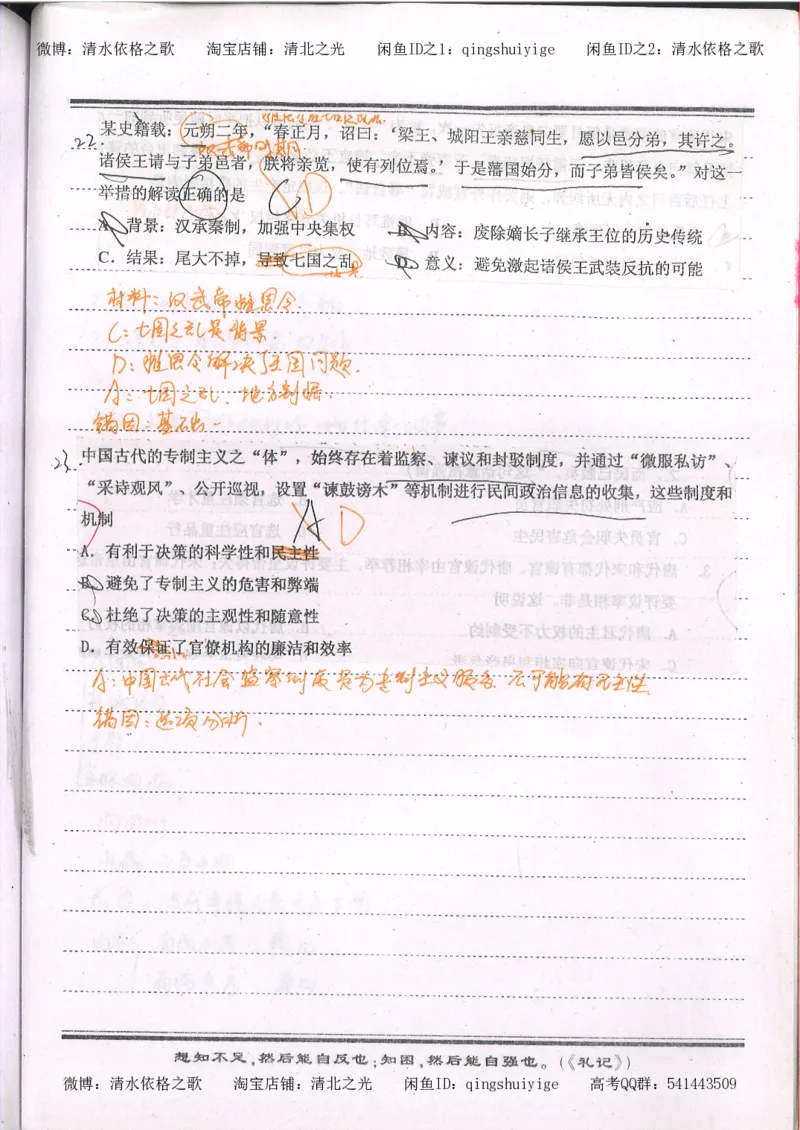 微博：清水依格之歌 淘宝店铺：清北之光 闲鱼ID之1：qingshuiyige 闲鱼ID之2：清水依格之歌
22. 某史籍载：元朔二年，“春正月，诏曰：‘梁王、城阳王亲慈同生，愿以邑分弟，其许之。
汉武帝时期
诸侯王请与子弟邑者，朕将亲览，使有列位焉。’于是藩国始分，而子弟皆侯矣。”对这一
举措的解读正确的是
C D
A．背景：汉承秦制，加强中央集权 B．内容：废除嫡长子继承王位的历史传统
C．结果：尾大不掉，导致七国之乱 D．意义：避免激起诸侯王武装反抗的可能
材料：汉武帝推恩令.
C：七国之乱是背景
D：推恩令解决了王国问题.
A：七国之乱、地方割据.
错因：基础
23. 中国古代的专制主义之“体”，始终存在着监察、谏议和封驳制度，并通过“微服私访”、
“采诗观风”、公开巡视，设置“谏鼓谤木”等机制进行民间政治信息的收集，这些制度和
机制
A D
A．有利于决策的科学性和民主性
B．避免了专制主义的危害和弊端
C．杜绝了决策的主观性和随意性
D．有效保证了官僚机构的廉洁和效率
A：中国古代社会监察制度是为专制主义服务，不可能有民主性
错因：选项分析.
想知不足，然后能自反也；知困，然后能自强也。（《礼记》）
微博：清水依格之歌 淘宝店铺：清北之光 闲鱼ID：qingshuiyige 高考QQ群：541443509